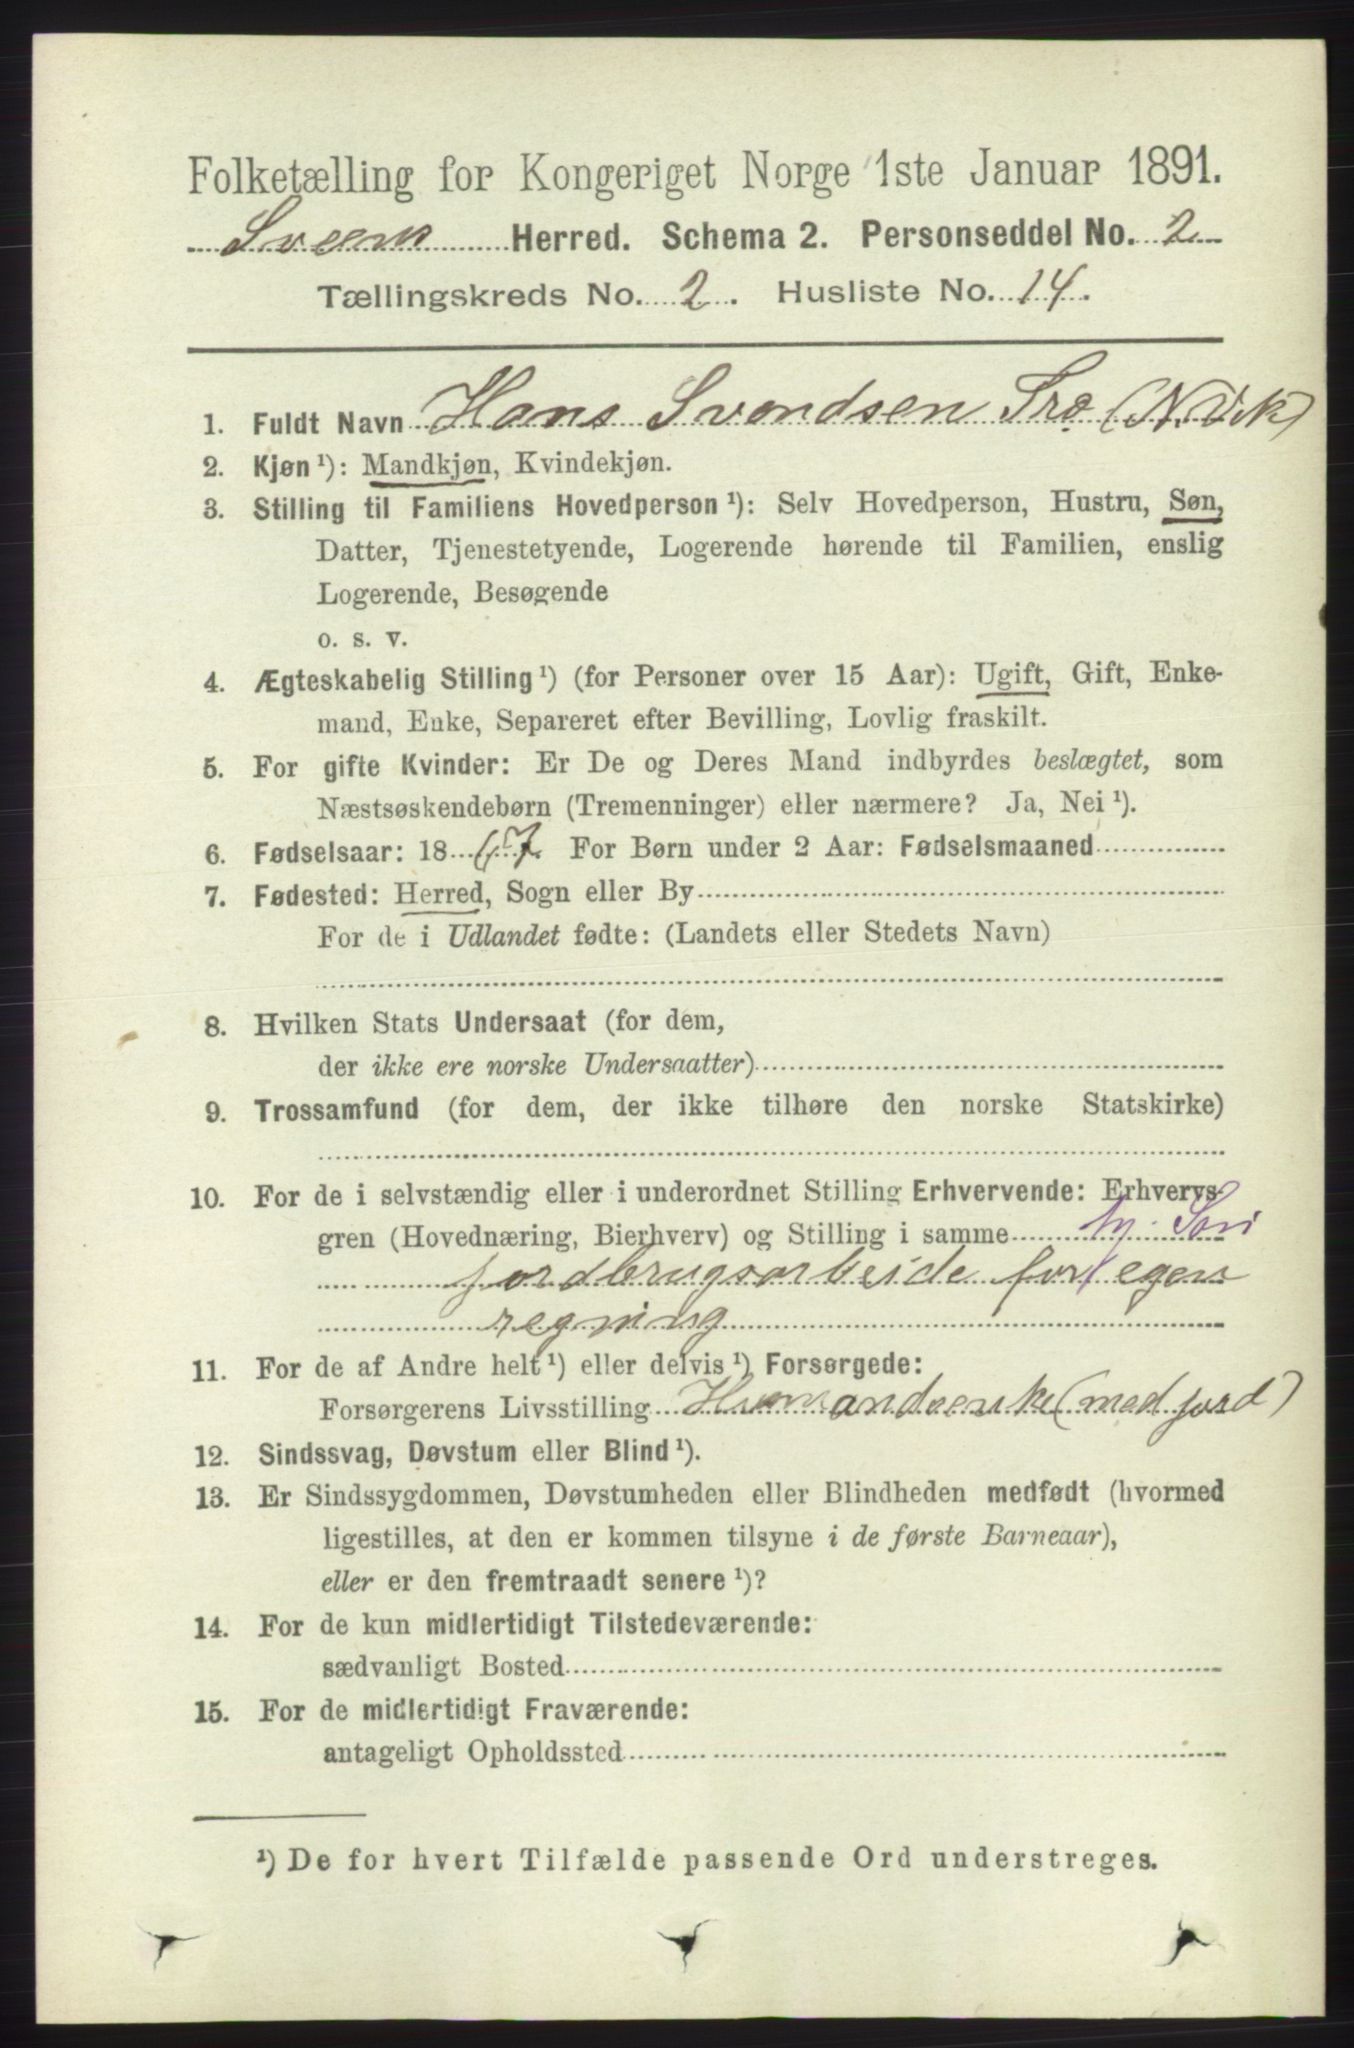 Folketælling for Kongeriget Norge 1ste Januar 1891.
Sveen Herred. Schema 2. Personseddel No. 2
Tællingskreds No. 2. Husliste No. 14.
1. Fuldt Navn Hans Svendsen (N. Vik)
2. Kjøn ¹): Mandkjøn, Kvindekjøn.
3. Stilling til Familiens Hovedperson ¹): Selv Hovedperson, Hustru, Søn,
Datter, Tjenestetyende, Logerende hørende til Familien, enslig
Logerende, Besøgende
o. s. v.
4. Ægteskabelig Stilling ¹) (for Personer over 15 Aar): Ugift, Gift, Enke-
mand, Enke, Separeret efter Bevilling, Lovlig fraskilt.
5. For gifte Kvinder: Er De og Deres Mand indbyrdes beslægtet, som
Næstsøskendebørn (Tremenninger) eller nærmere? Ja, Nei ¹).
6. Fødselsaar: 18 67. For Børn under 2 Aar: Fødselsmaaned
7. Fødested: Herred, Sogn eller By
For de i Udlandet fødte: (Landets eller Stedets Navn)
8. Hvilken Stats Undersaat (for dem,
der ikke ere norske Undersaatter)
9. Trossamfund (for dem, der ikke tilhøre den norske Statskirke)
10. For de i selvstændig eller i underordnet Stilling Erhvervende: Erhvervs-
gren (Hovednæring, Bierhverv) og Stilling i samme
jordbrugsarbeide for egen
regning
11. For de af Andre helt ¹) eller delvis ¹) Forsørgede:
Forsørgerens Livsstilling (med jord)
12. Sindssvag, Døvstum eller Blind ¹).
13. Er Sindssygdommen, Døvstumheden eller Blindheden medfødt (hvormed
ligestilles, at den er kommen tilsyne i de første Barneaar),
eller er den fremtraadt senere ¹)?
14. For de kun midlertidigt Tilstedeværende:
sædvanligt Bosted
15. For de midlertidigt Fraværende:
antageligt Opholdssted
¹) De for hvert Tilfælde passende Ord understreges.